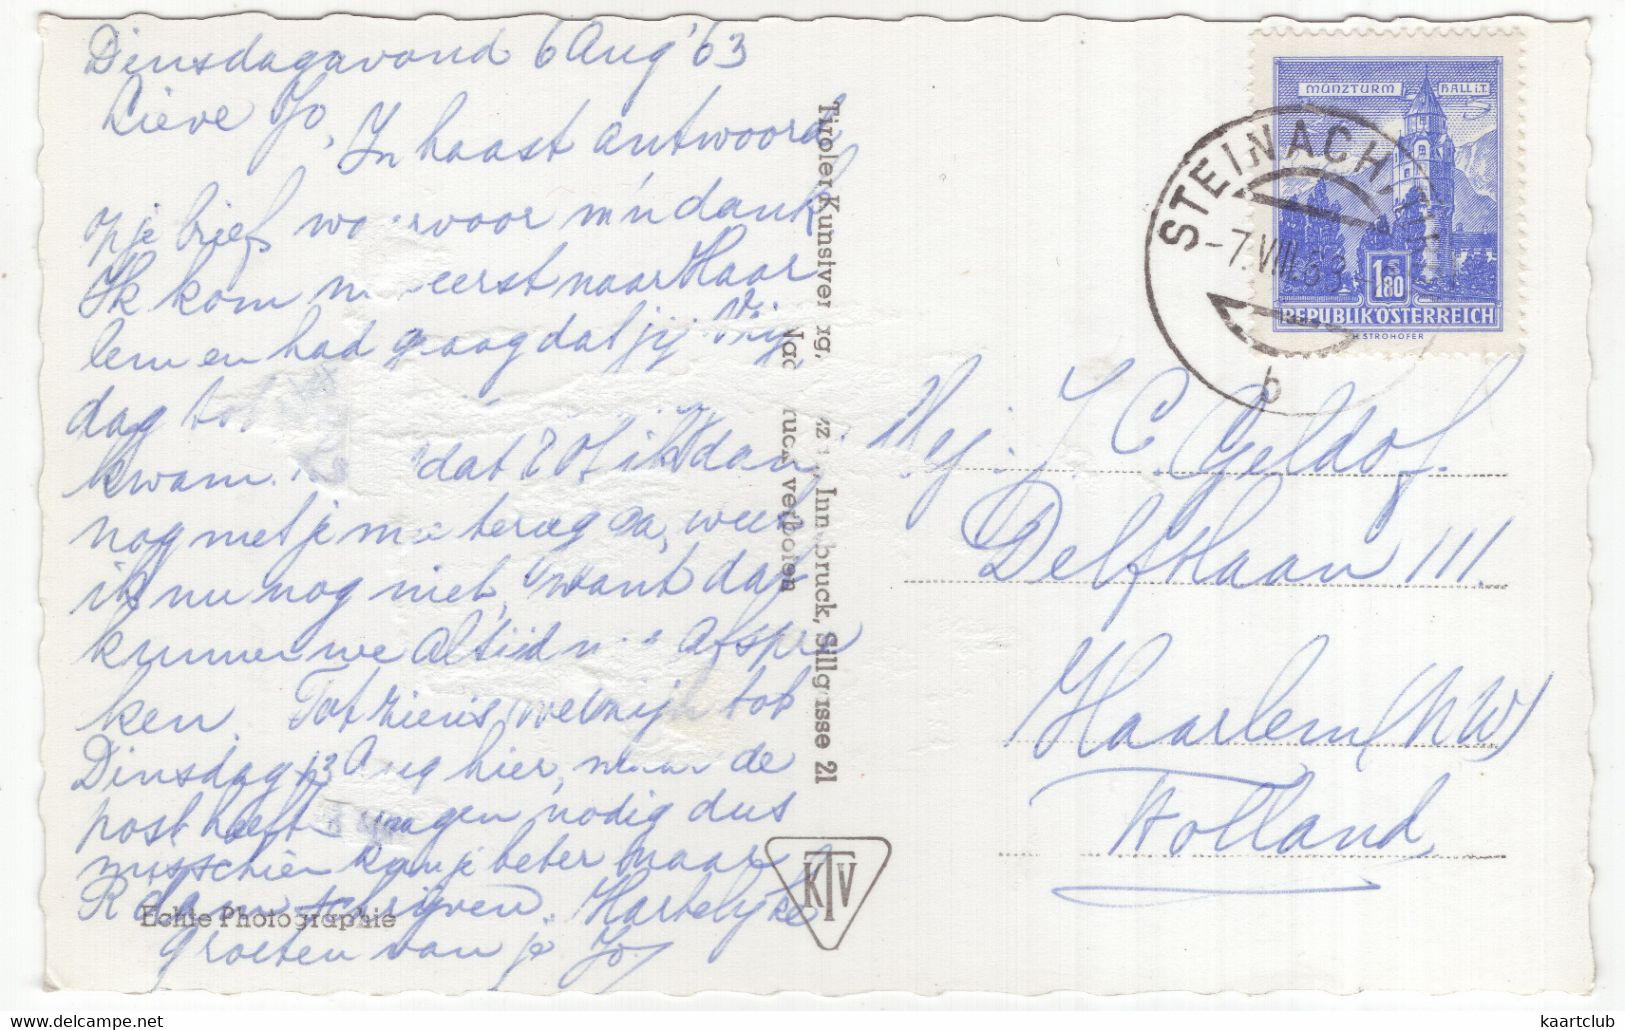 Dinsdagavond 6 Aug '63
Lieve Jo,
In haast antwoord
op je brief waarvoor m'n dank
Ik kom eerst naar Haar
lem en had graag dat jij Vrij
dag
kwam. dat? Of ik dan
nog met je mee terug ga, weet
ik nu nog niet, want dat
kunnen we altijd nog afspre
ken. Tot ziens, we zijn tot
Dinsdag 13 Aug hier, maar de
post heeft dagen nodig dus
misschien kan je beter naar
R'dam schrijven. Hartelijke
groeten van je Jo
Echte Photographie
Tiroler Kunstver rg, Inn bruck, Sillg sse 21
Nac ruck verboten
KTV
MÜNZTURM HALL i.T.
1.80
S
REPUBLIK ÖSTERREICH
H. STROHOFER
STEINACH
-7.VIII.63
b
Mej. J. C. Geldof.
Delftlaan 111.
Haarlem (NW)
Holland
kaartclub
www.delcampe.net